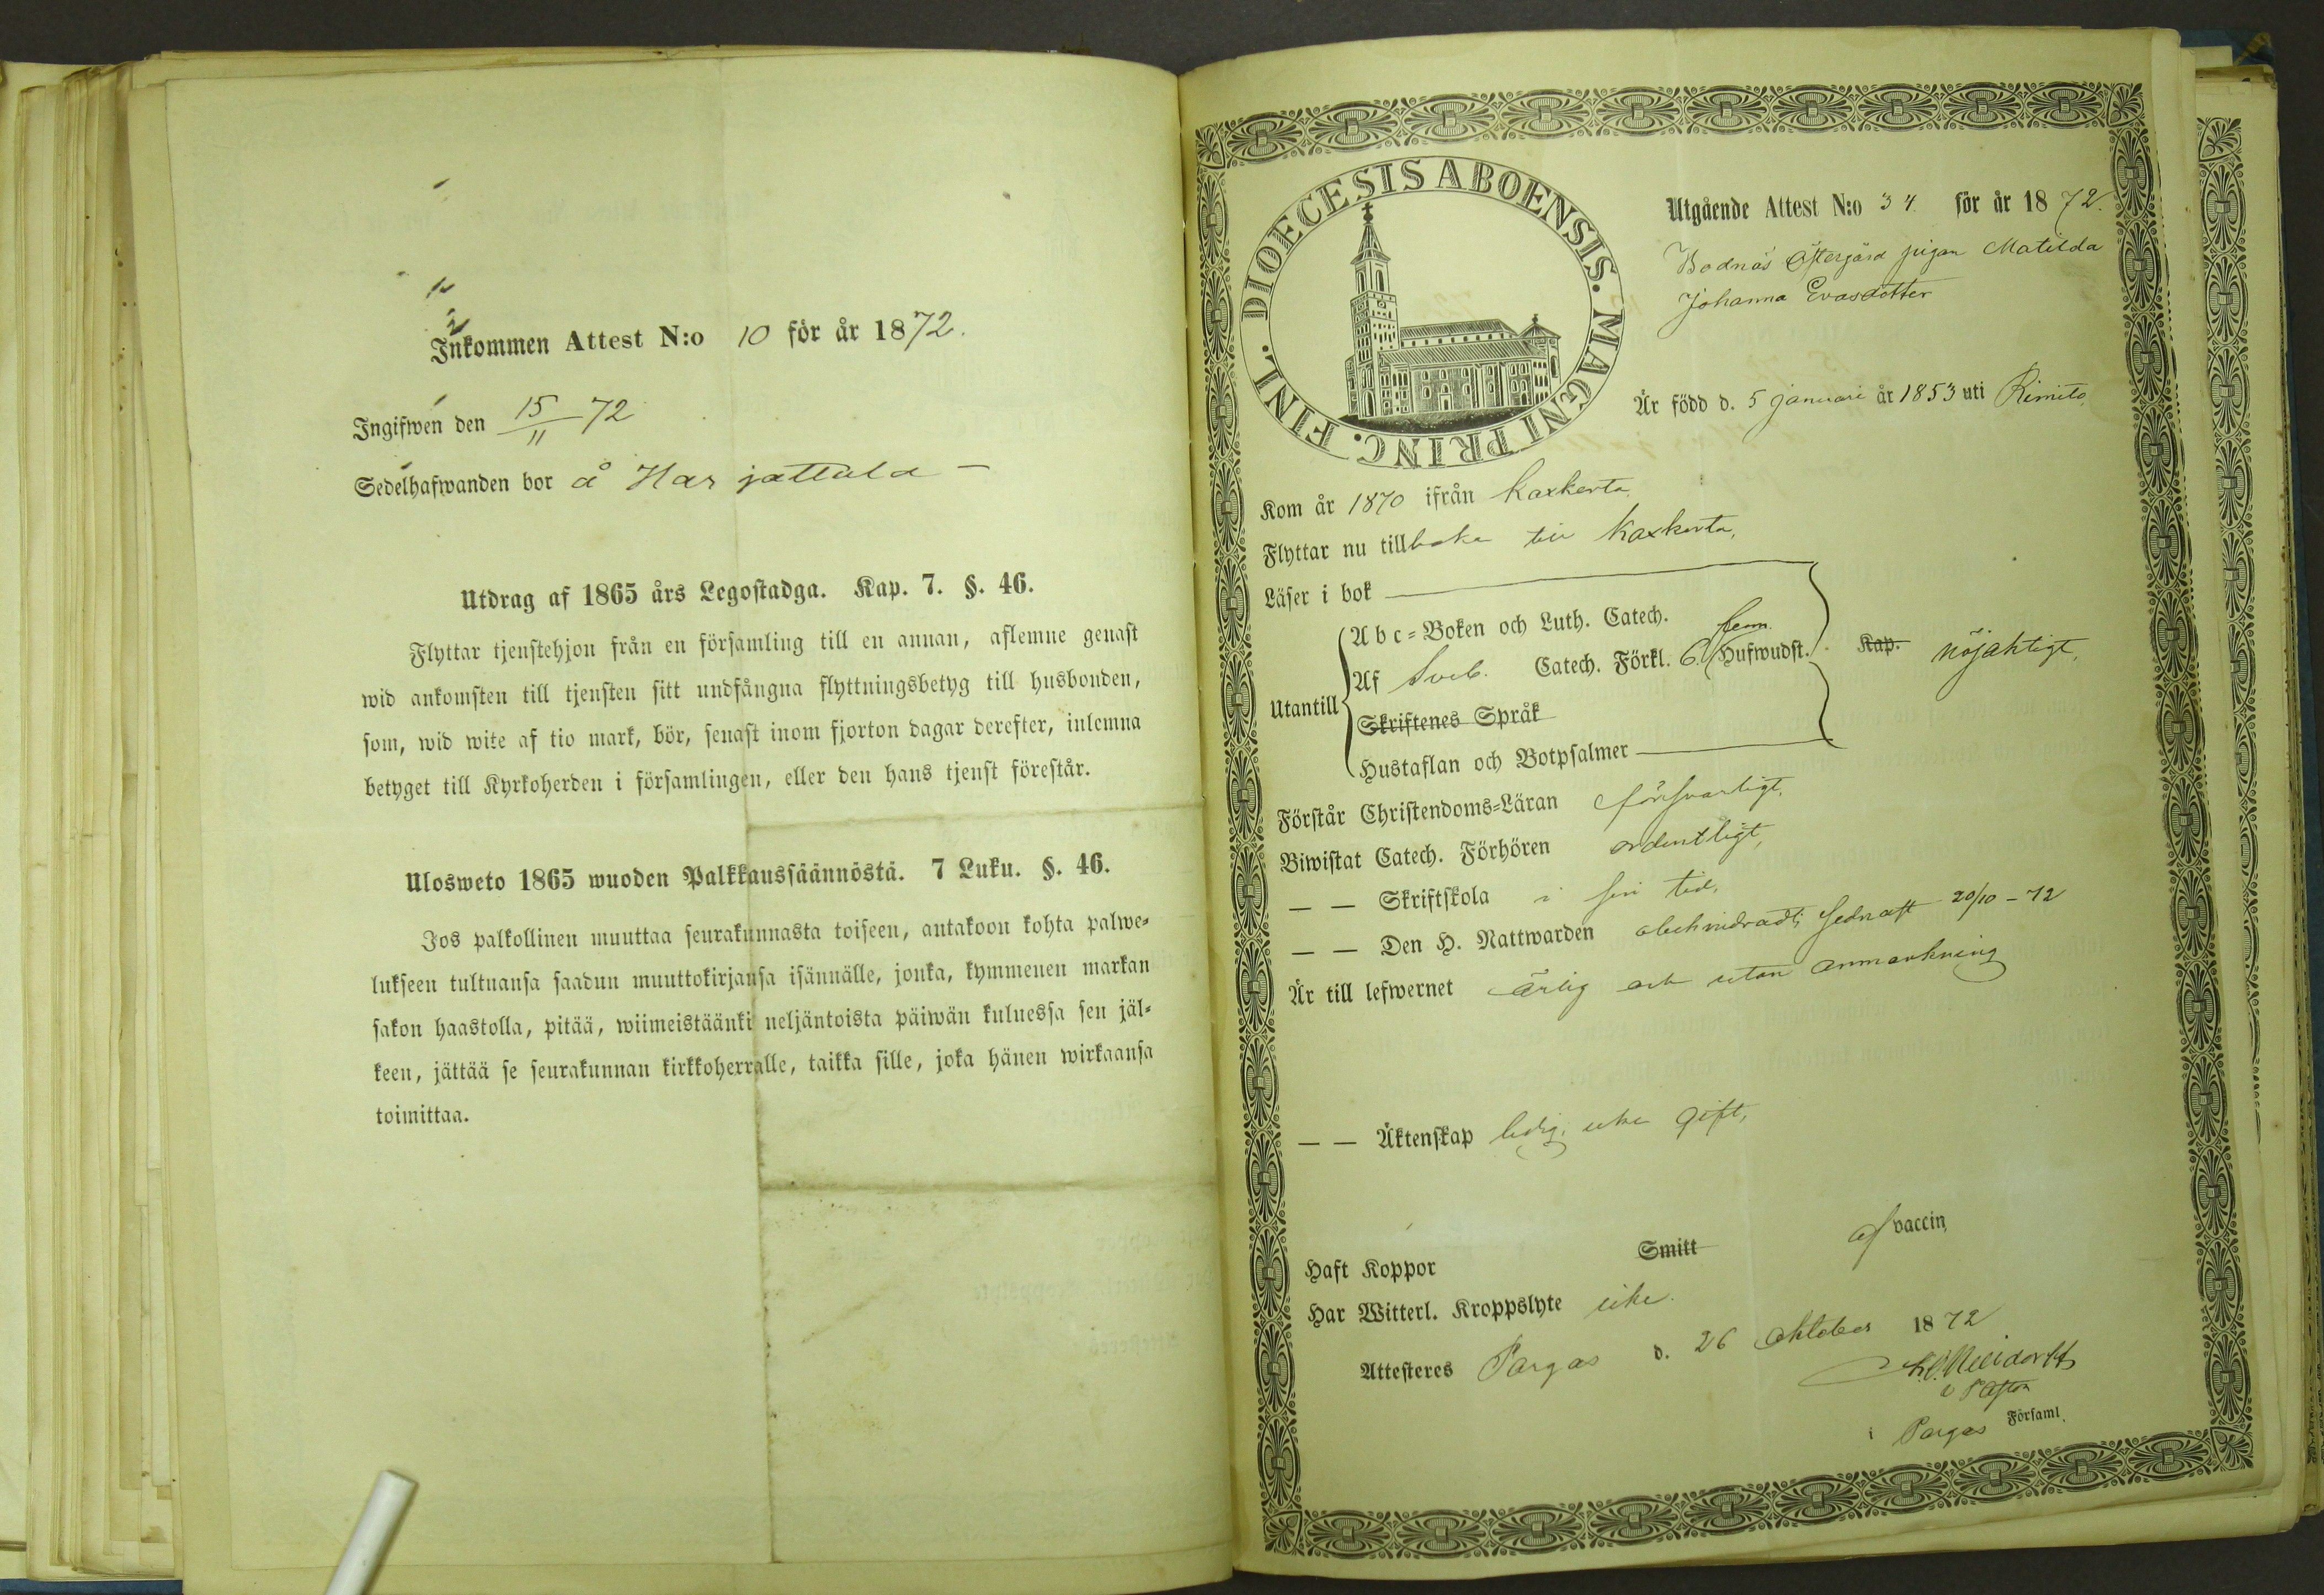 Inkommen Attest N:o 10 för år 1872.
Ingifwen den 15/11 72
Sedelhafwanden bor å Harjattula –
Utdrag af 1865 års Legostadga. Kap. 7. §. 46.
Flyttar tjenstehjon från en församling till en annan, aflemne genast
wid ankomsten till tjensten sitt undfångna flyttningsbetyg till husbonden,
som, wid wite af tio mark, bör, senast inom fjorton dagar derefter, inlemna
betyget till Kyrkoherden i församlingen, eller den hans tjenst förestår.
Ulosweto 1865 wuoden Palkkaussäännöstä. 7 Luku. §. 46.
Jos palkollinen muuttaa seurakunnasta toiseen, antakoon kohta palwe-
lukseen tultuansa saadun muuttokirjansa isännälle, jonka, kymmenen markan
sakon haastolla, pitää, wiimeistäänki neljäntoista päiwän kuluessa sen jäl-
keen, jättää se seurakunnan kirkkoherralle, taikka sille, joka hänen wirkaansa
toimittaa.
DIOECESIS ABOENSIS. MAGNI PRINC. FINL.
Utgående Attest N:o 34. för år 1872.
Bodnäs Östergård pigan Matilda
Johanna Evasdotter
Är född d. 5 januari år 1853 uti Rimito
Kom år 1870 ifrån Kaxkerta
Flyttar nu tillbaka till Kaxkerta,
Läser i bok
Abc-Boken och Luth. Catech.
fem
Utantill Af Sveb. Catech. Förkl. 6. Hufwudst. Kap. nöjaktigt.
Skriftenes Språk
Hustaflan och Botpsalmer
Förstår Christendoms-Läran försvarligt.
Biwistat Catech. Förhören ordentligt,
— — Skriftskola i sin tid.
— — Den H. Nattwarden obehindradt, sednast 20/10 – 72
Är till lefwernet ärlig och utan anmärkning
— — Äktenskap ledig, icke gift,
Haft Koppor Smitt af vaccin
Har Witterl. Kroppslyte icke.
Attesteres Pargas d. 26 Oktober 1872
i Pargas Församl.